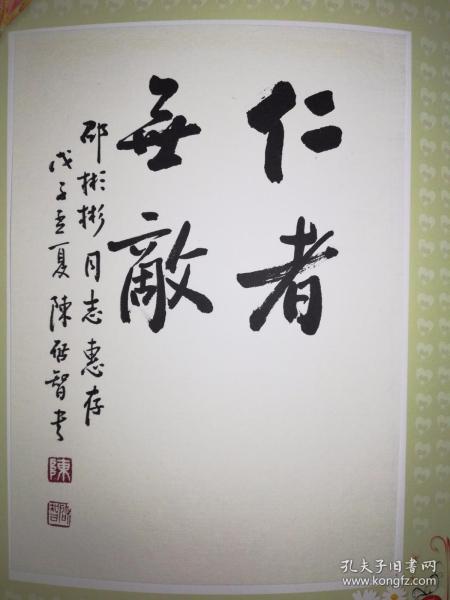 仁者
無敵
邵彬彬同志惠存
戊子孟夏 陳啓智书
陳
啓智
孔夫子旧书网
www.kongfz.com